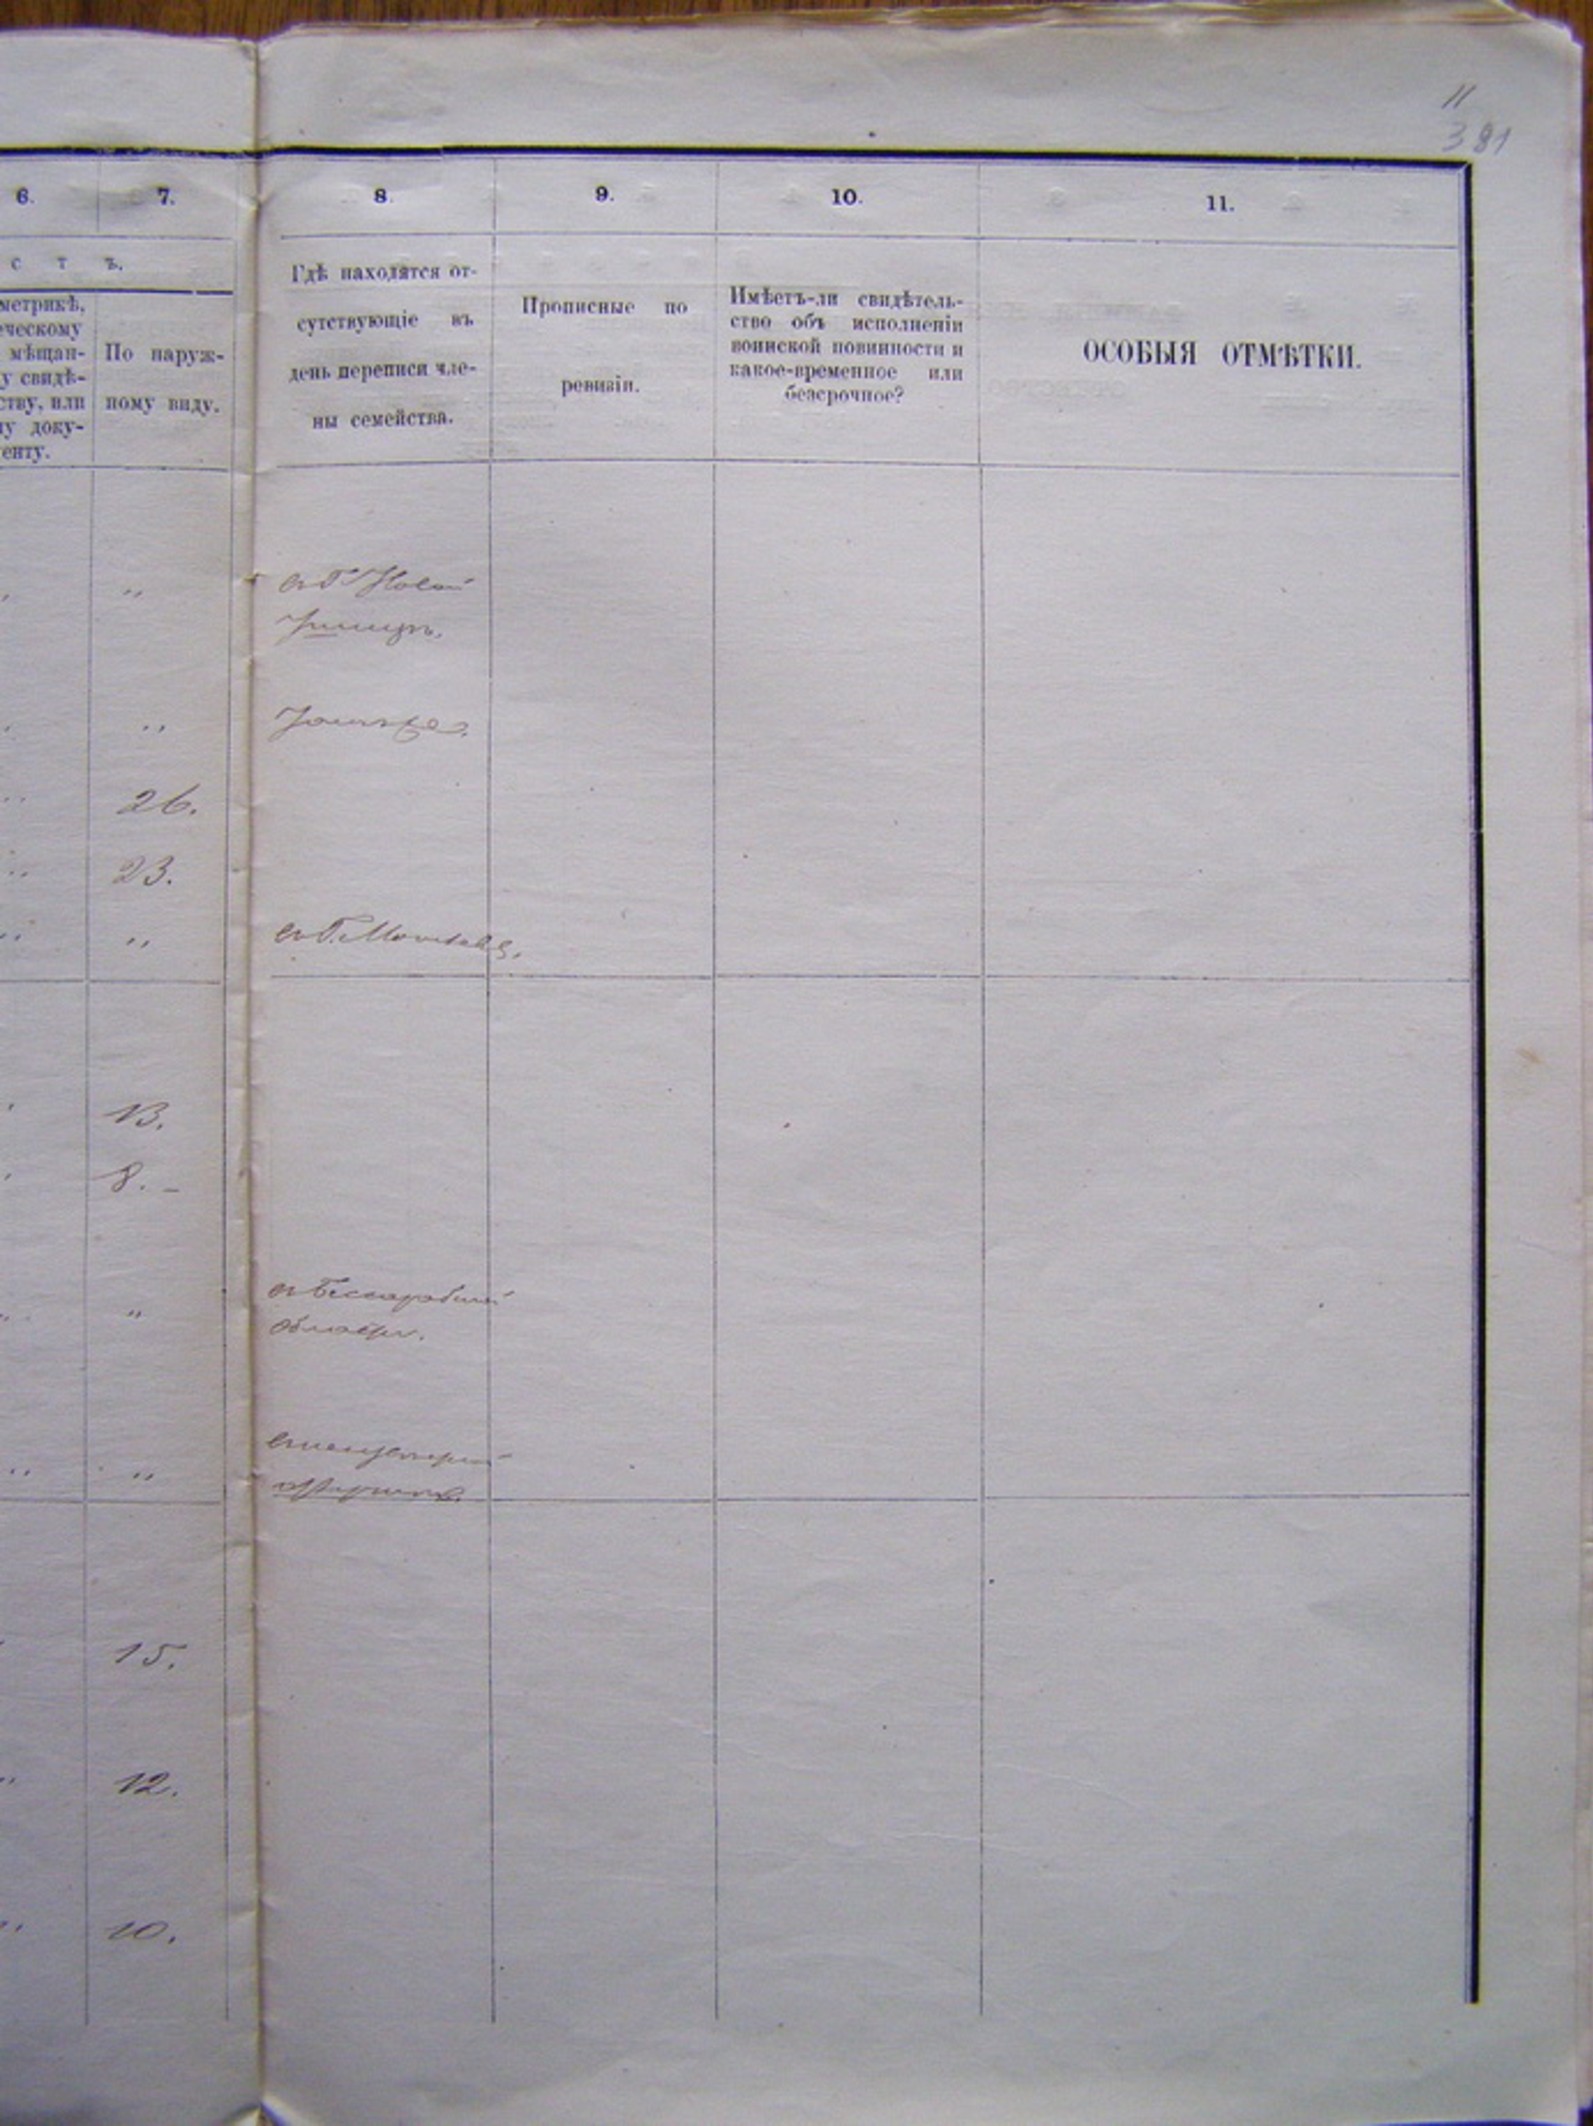 11
381
6.
7.
8.
9.
10.
11.
с т ъ.
метрикѣ,
ческому
мѣщан-
у свидѣ-
ству, или
у доку-
енту.
По наруж-
ному виду.
Гдѣ находятся от-
сутствующіе въ
день переписи чле-
ны семейства.
Прописные по
ревизіи.
Имѣетъ-ли свидѣтель-
ство объ исполненіи
воинской повинности и
какое-временное или
безсрочное?
ОСОБЫЯ ОТМѢТКИ.
„
въ Г. Новой
„
26.
23.
„ „
въ Г.
13.
8. –
„ „
въ Бессарабской
области.
„ „
15.
„ 12.
„ 10.